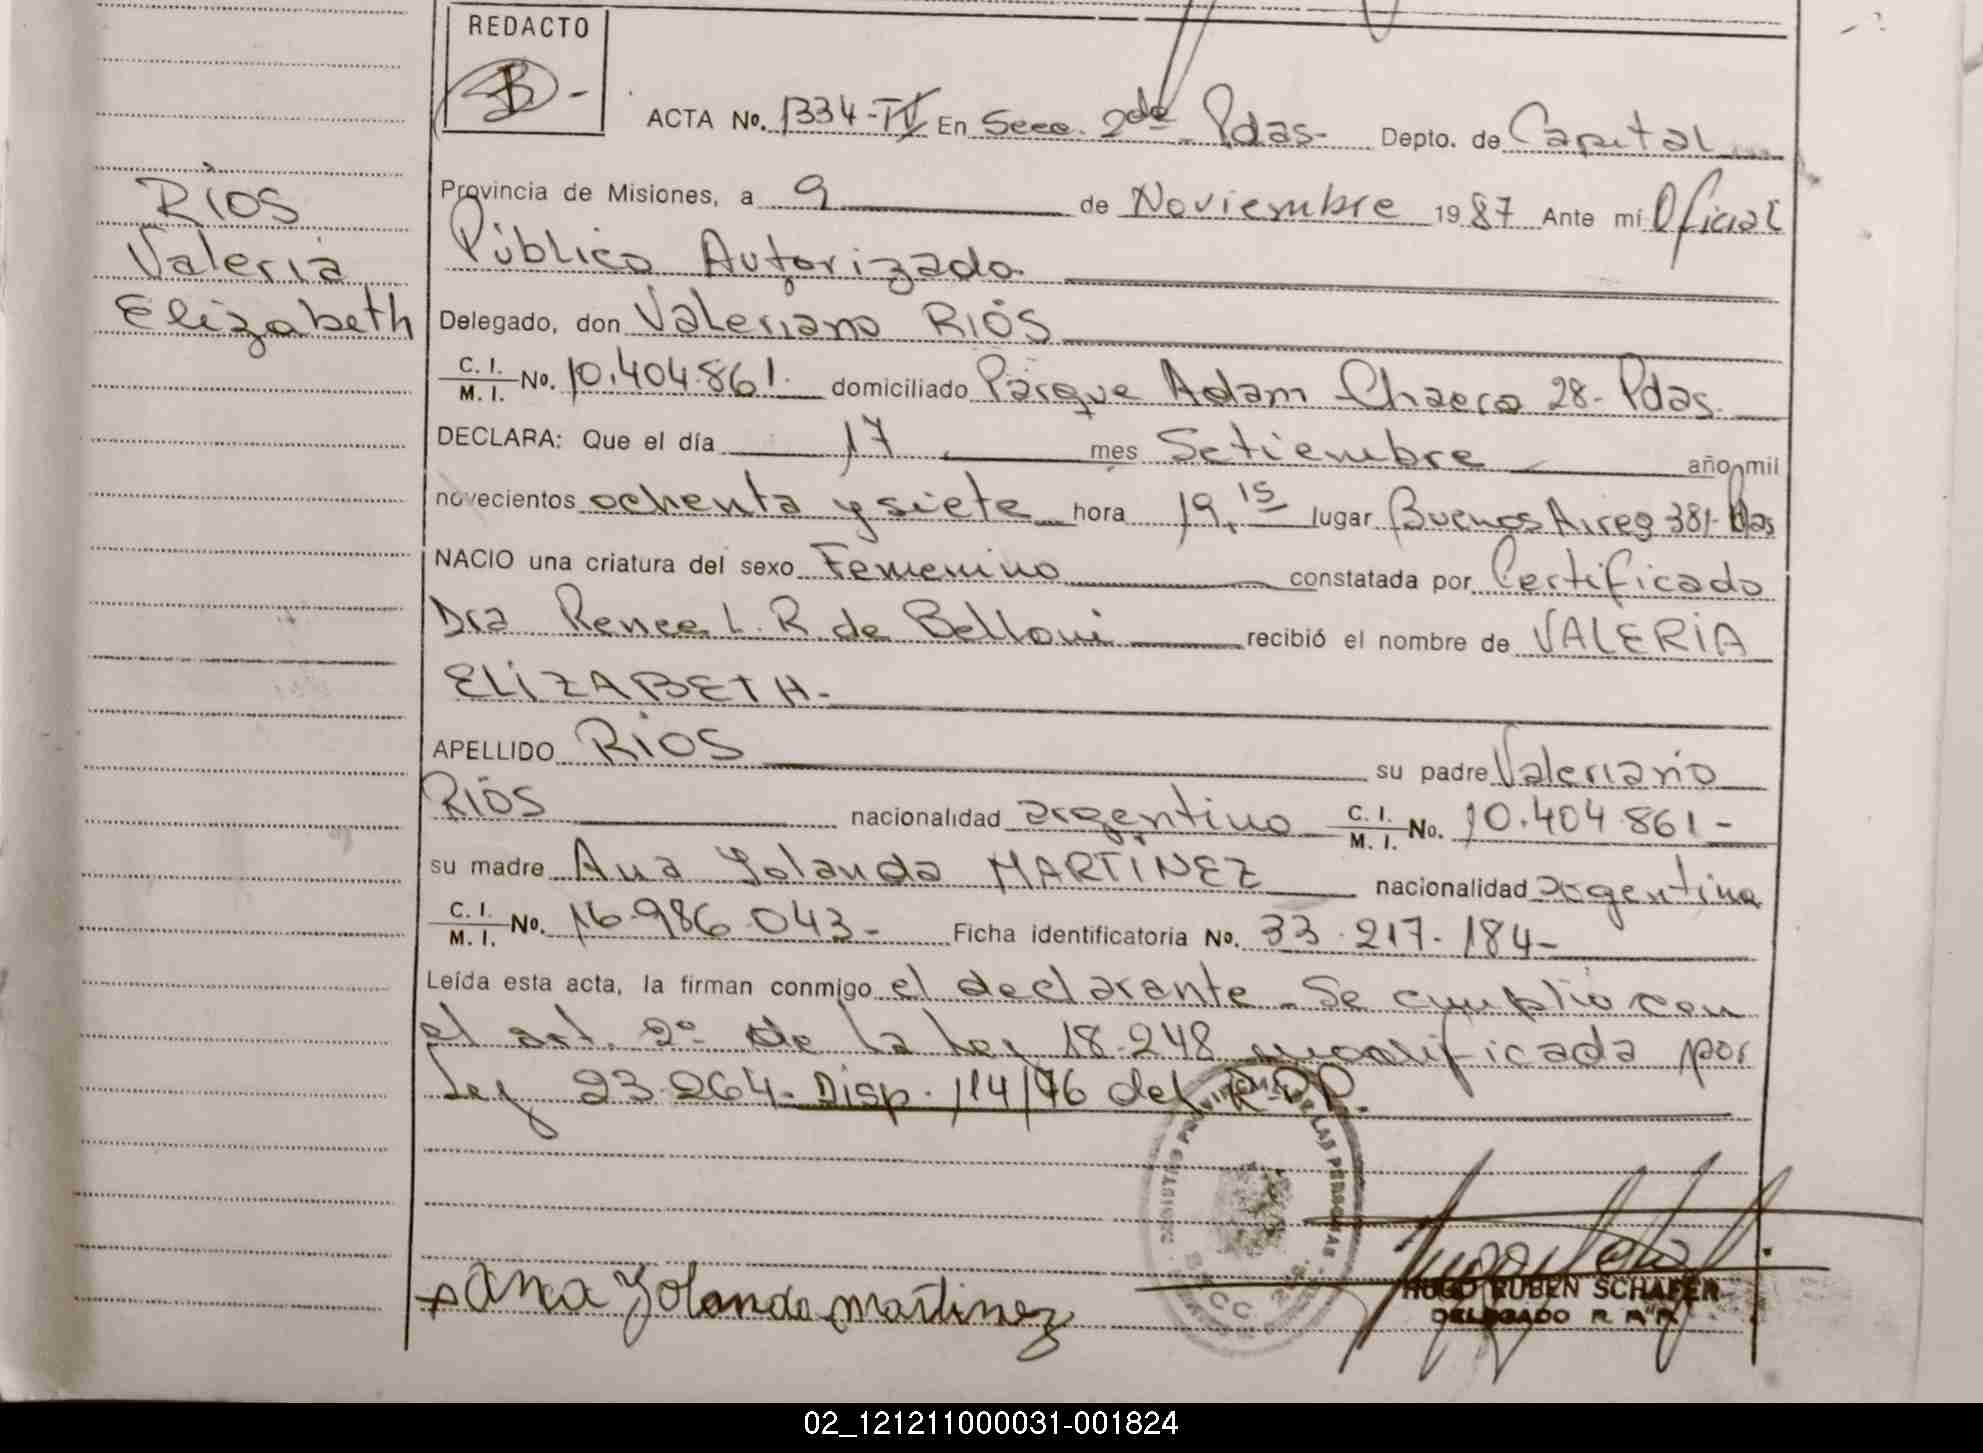 REDACTO
ACTA No. 1334-IV En Secc. 2da Pdas- Depto. de Capital
Provincia de Misiones, a 9 de Noviembre 1987 Ante mí Oficial
Público Autorizado.
Delegado, don Valeriano RIOS
C. I. / M. I. No. 10.404.861. domiciliado Parque Adam Chacra 28- Pdas.
DECLARA: Que el día 17 mes Setiembre año mil
novecientos ochenta y siete hora 19,15 lugar Buenos Aires 381- Pdas
NACIO una criatura del sexo Femenino constatada por Certificado
Dra Renee L. R. de Belloni recibió el nombre de VALERIA
ELIZABETH-
APELLIDO RIOS su padre Valeriano
RIOS nacionalidad argentino C. I. / M. I. No. 10.404.861-
su madre Ana Yolanda MARTINEZ nacionalidad argentina
C. I. / M. I. No. 16.986.043- Ficha identificatoria No. 33.217.184-
Leída esta acta, la firman conmigo el declarante - Se cumplio con
el art. 2º de la Ley 18.248 modificada por
Ley 23.264- Disp. 114/76 del R.P.P.
RIOS
Valeria
Elizabeth
Ana Yolanda martinez
HUGO RUBEN SCHAFER
DELEGADO
02_121211000031-001824